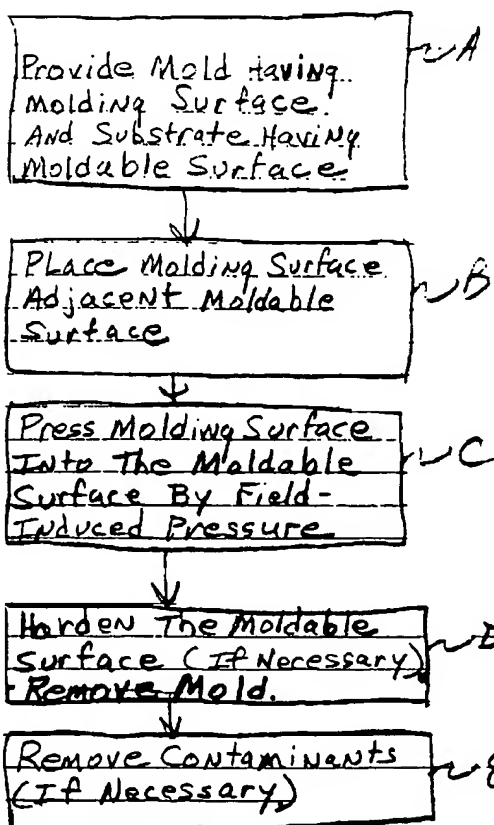 Provide Mold Having
Molding Surface
And Substrate Having
Moldable Surface
A
Place Molding Surface
Adjacent Moldable
Surface
B
Press Molding Surface
Into The Moldable
Surface By Field-
Induced Pressure
C
Harden The Moldable
Surface (If Necessary)
Remove Mold.
Remove Contaminants
(If Necessary)